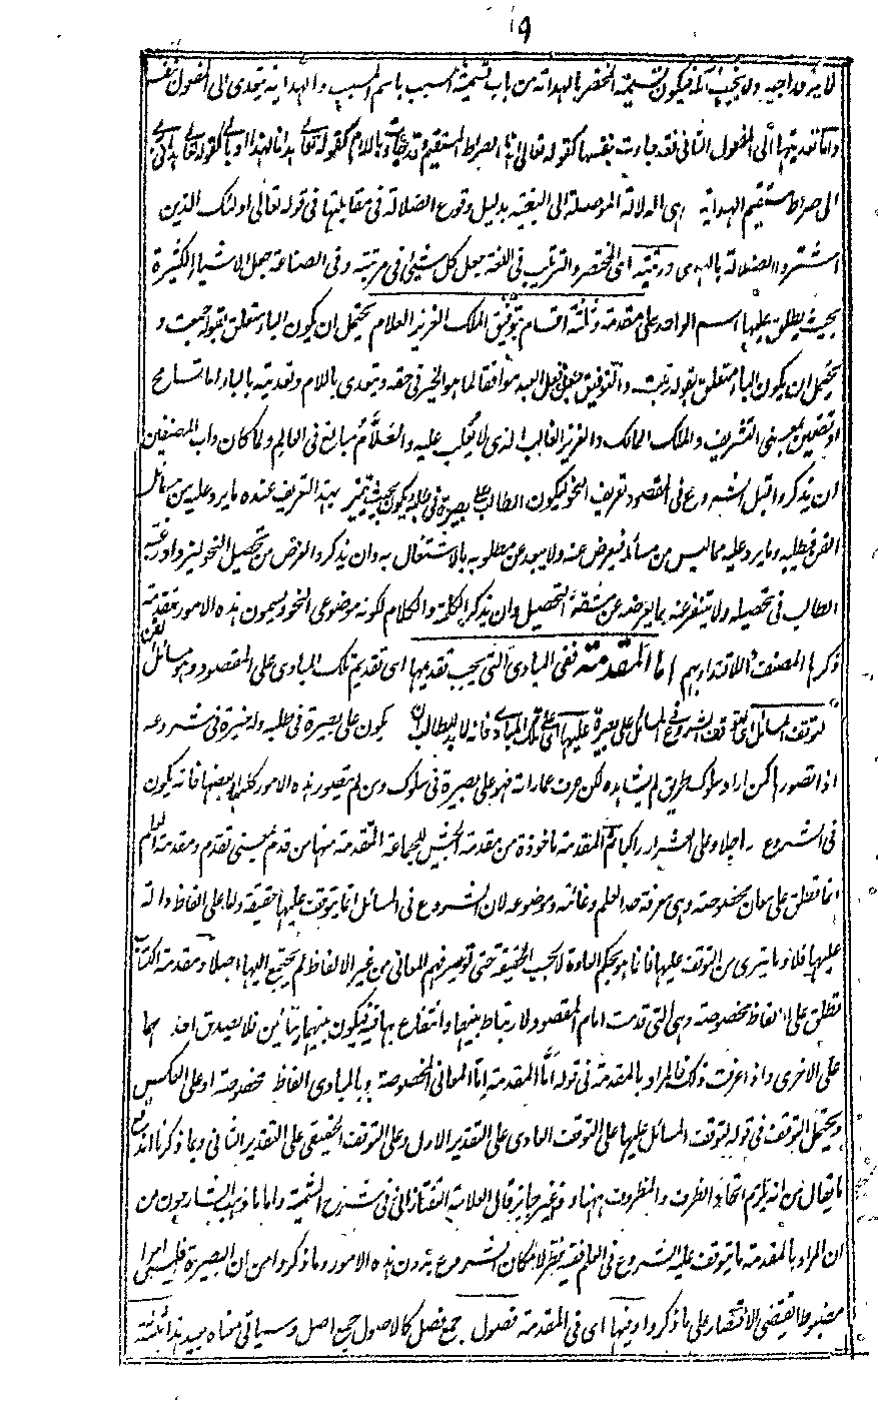 ٩
لا يزيد اجيبه ولا يخيب آمله فيكون تسمية المختصر بالهداية من باب تسمية السبب باسم المسبب والهداية يتعدى الى المفعول بنفسه
واما تعديتها الى المفعول الثانى فقد جاءت بنفسها كقوله تعالى اهدنا الصراط المستقيم وقد جاءت باللام كقوله تعالى هدانا لهذا او بالى كقوله تعالى هدانى
الى صراط مستقيم الهداية هى الدلالة الموصلة الى البغية بدليل وقوع الضلالة فى مقابلتها فى قوله تعالى اولئك الذين
اشتروا الضلالة بالهدى ورتبته اى المختصر والترتيب فى اللغة جعل كل شيئ فى مرتبته وفى الصناعة جعل الاشياء الكثيرة
بحيث يطلق عليها اسم الواحد على مقدمة وثلثة اقسام بتوفيق الملك العزيز العلام يحتمل ان يكون الباء متعلق بقوله جمعت و
يحتمل ان يكون الباء متعلق بقوله رتبت والتوفيق جعل فعل العبد موافقا لما هو الخير فى حقه ويتعدى باللام وتعديته بالباء اما تسامح
او تضمين بمعنى التشريف والملك المالك والعزيز الغالب الذى لا يُغلب عليه والعَلَّامُ مبالغ فى العالم ولما كان داب المصنفين
ان يذكروا قبل الشروع فى المقصود تعريف النحو ليكون الطالب على بصيرة فى طلبه ويكون بحيث يتميز بهذا التعريف عنده ما يرد عليه من مسائل
الفن فيطلبه وما يرد عليه مما ليس من مسائله فيعرض عنه ولا يبعد عن مطلوبه بالاشتغال به وان يذكروا الغرض من تحصيل النحو ليزداد رغبته
الطالب فى تحصيله ولا يتنفر عنه بما يعرضه عن مشقة التحصيل وان يذكر الكلمة والكلام لكونه موضوعى النحو ويسمون هذه الامور مقدمة
ذكرها المصنف للاقتداء بهم اما المقدمة ففى المبادى التى يجب تقديمها اى تقديم تلك المبادى على المقصود وهو مسائل الفن
لتوقف المسائل اى لتوقف الشروع فى المسائل على بصيرة عليها اى على تلك المبادى فانه لا بد للطالب ان يكون على بصيرة فى طلبه ولا خيرة فى شروعه
اذا تصورها كمن اراد سلوك طريق لم يشاهده لكن عرف عماراته فهو على بصيرة فى سلوك ومن لم يتصور هذه الامور كلها او بعضها فانه يكون
فى الشروع راجلا وعلى الشرار راكبا ثم المقدمة ماخوذة من مقدمة الجيش للجماعة المتقدمة منها من قدم بمعنى تقدم ومقدمة العلم
انما تطلق على معان مخصوصة وهى معرفة حد العلم وغائته وموضوعه لان الشروع فى المسائل انما يتوقف عليها حقيقة واما على الفاظ دالة
عليها فلا وما يترى من التوقف عليها فانما هو بحكم العادة لا بحسب الحقيقة حتى لو تيسر فهم المعانى من غير الالفاظ لم يحتج اليها اصلا ومقدمة الكتاب
تطلق على الفاظ مخصوصة وهى التى قدمت امام المقصود لارتباط بينهما وانتفاع بها فيه فيكون بينهما تباين فلا يصدق احدهما
على الاخرى واذا عرفت ذلك فالمراد بالمقدمة فى قوله اما المقدمة اما المعانى المخصوصة وبالمبادى الفاظ مخصوصة او على العكس
ويحتمل التوقف فى قوله لتوقف المسائل عليها على التوقف العادى على التقدير الاول وعلى التوقف الحقيقى على التقدير الثانى وبما ذكرنا اندفع
ما يقال من انه يلزم اتحاد الظرف والمظروف ههنا وهو غير جايز قال العلامة التفتازانى فى شرح الشمسية واما ما ذهب الشارحون من
ان المراد بالمقدمة ما يتوقف عليه الشروع فى العلم ففيه نظر لامكان الشروع بدون هذه الامور وما ذكروا من ان البصيرة فليس امرا
مضبوطا يقتضى الاقتصار على ما ذكروا وفيها اى فى المقدمة فصول جمع فصل كالاصول جمع اصل وسياتى معناه بعيد هذا ثلثة